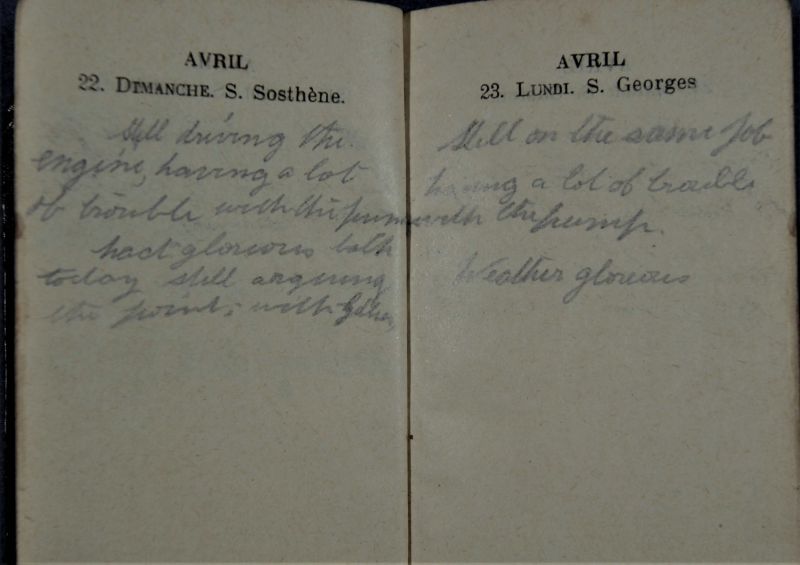 AVRIL
22. DIMANCHE. S. Sosthène.
Still driving the
engine, having a lot
of trouble with the pump
had glorious bath
today still arguing
the point, with
AVRIL
23. LUNDI. S. Georges
Still on the same job
having a lot of trouble
with the pump.
Weather glorious